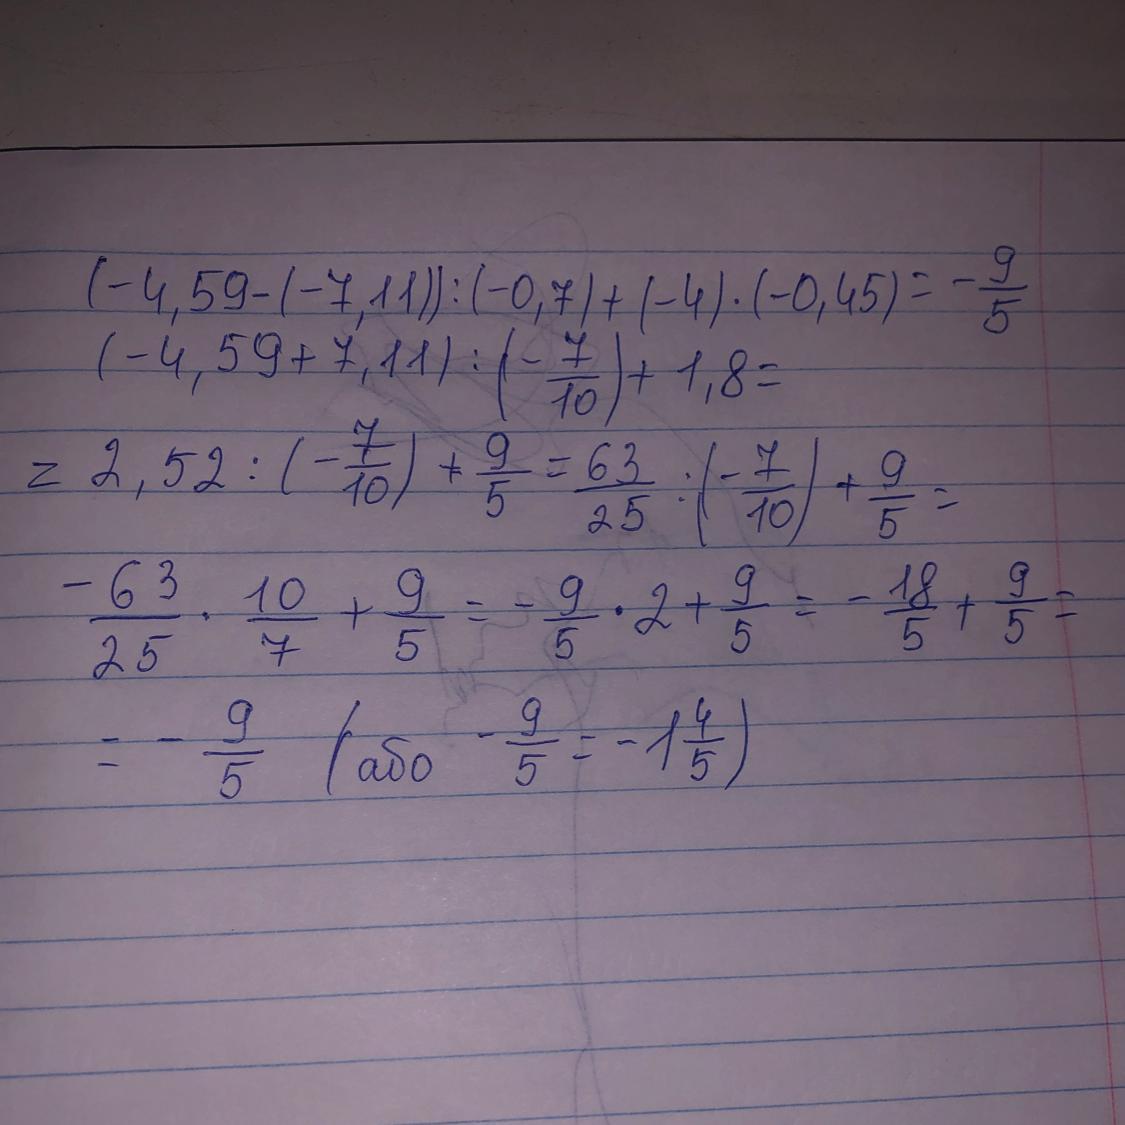 (-4,59-(-7,11)):(-0,7)+(-4)·(-0,45)= -9/5
(-4,59+7,11):(-7/10)+1,8=
= 2,52:(-7/10)+9/5=63/25:(-7/10)+9/5=
-63/25·10/7+9/5=-9/5·2+9/5=-18/5+9/5=
=-9/5 (або -9/5=-1 4/5)